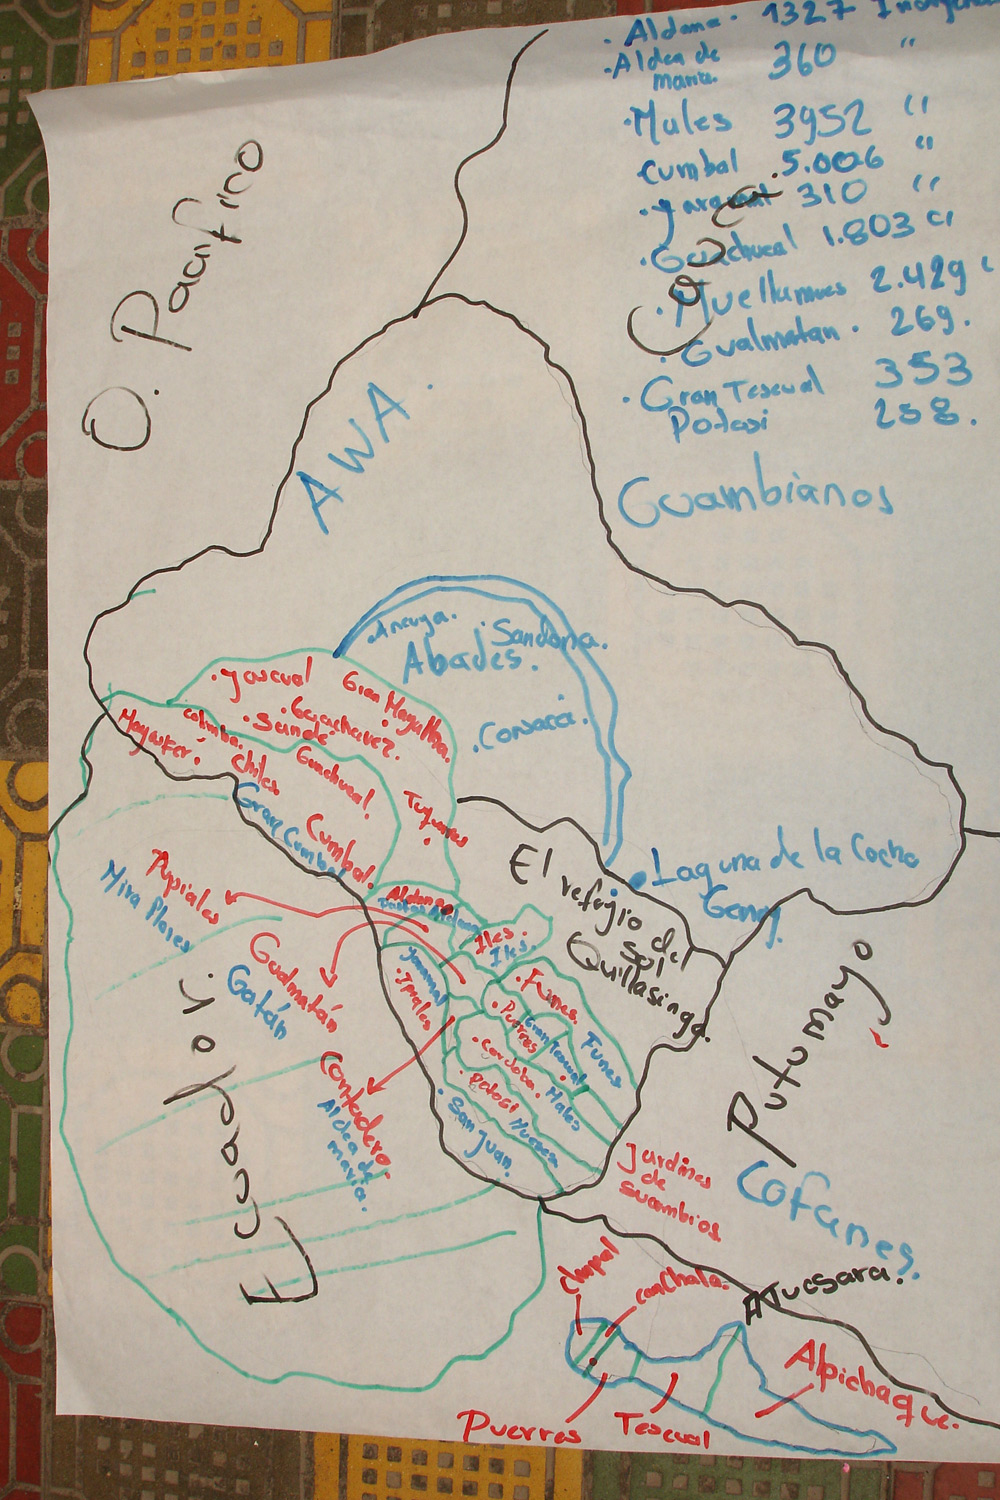 · Aldana · 1327
· Aldea de
maria. 360 "
· Males 3952 "
Cumbal 5.006 "
310 "
· Guachucal 1.803 "
· Muellamues 2.429
· Gualmatan · 269.
· Gran Tescual 353
Potosi 258.
Cauca
O. Pacifico
AWA.
Guambianos
· Ancuya.
Sandona.
Abades.
. Consaca.
· yascual
Gran Mayallma.
· Guachavez.
· Sande
Colimba.
Mayasker.
Chiles
Guachucal.
Gran Cumbal
Cumbal.
Tuquerres
El refugio del
Sol
Quillasinga
Laguna de la Cocha
Genoy
Aldana
Pastas Aldana
Iles.
Iles.
Ipiales
Mira Flores
Gualmatán
Gatán
Contadero.
Aldea de
maria.
Ecuador.
yaramal
· Ipiales
· Funes.
Funes
· Puerres
Gran Tescual
· Cordoba.
Males
· Potosi
Mueses
· San Juan.
Putumayo
Cofanes.
Jardines
de
sucumbios
Chapal
conChala.
ATucsara.
Alpichaque.
Puerres
Tescual